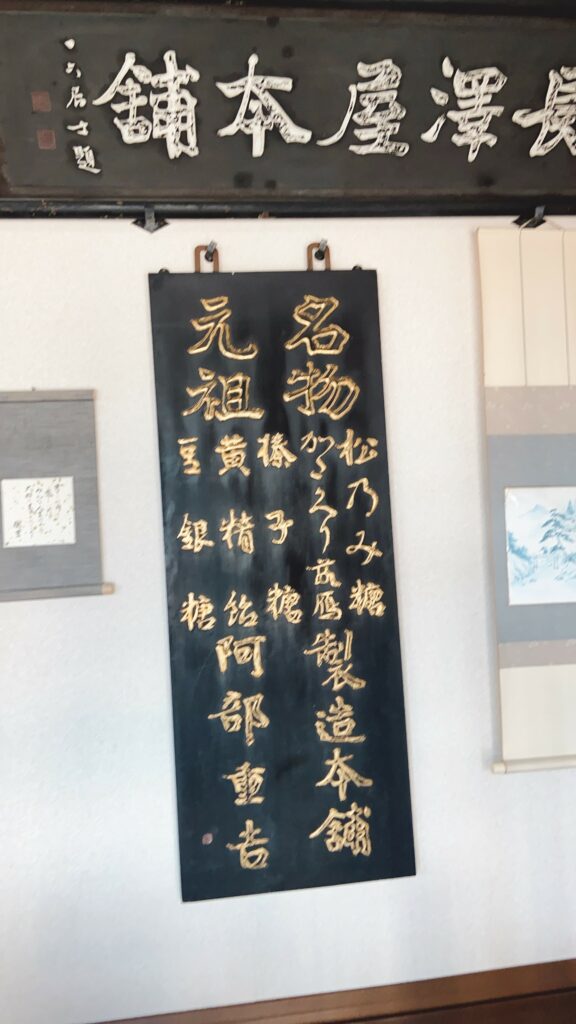 長澤屋本舗
一六居士題
名物
松乃み糖
かたくり落雁
製造本舗
元祖
榛子糖
黄精飴
豆銀糖
阿部重吉